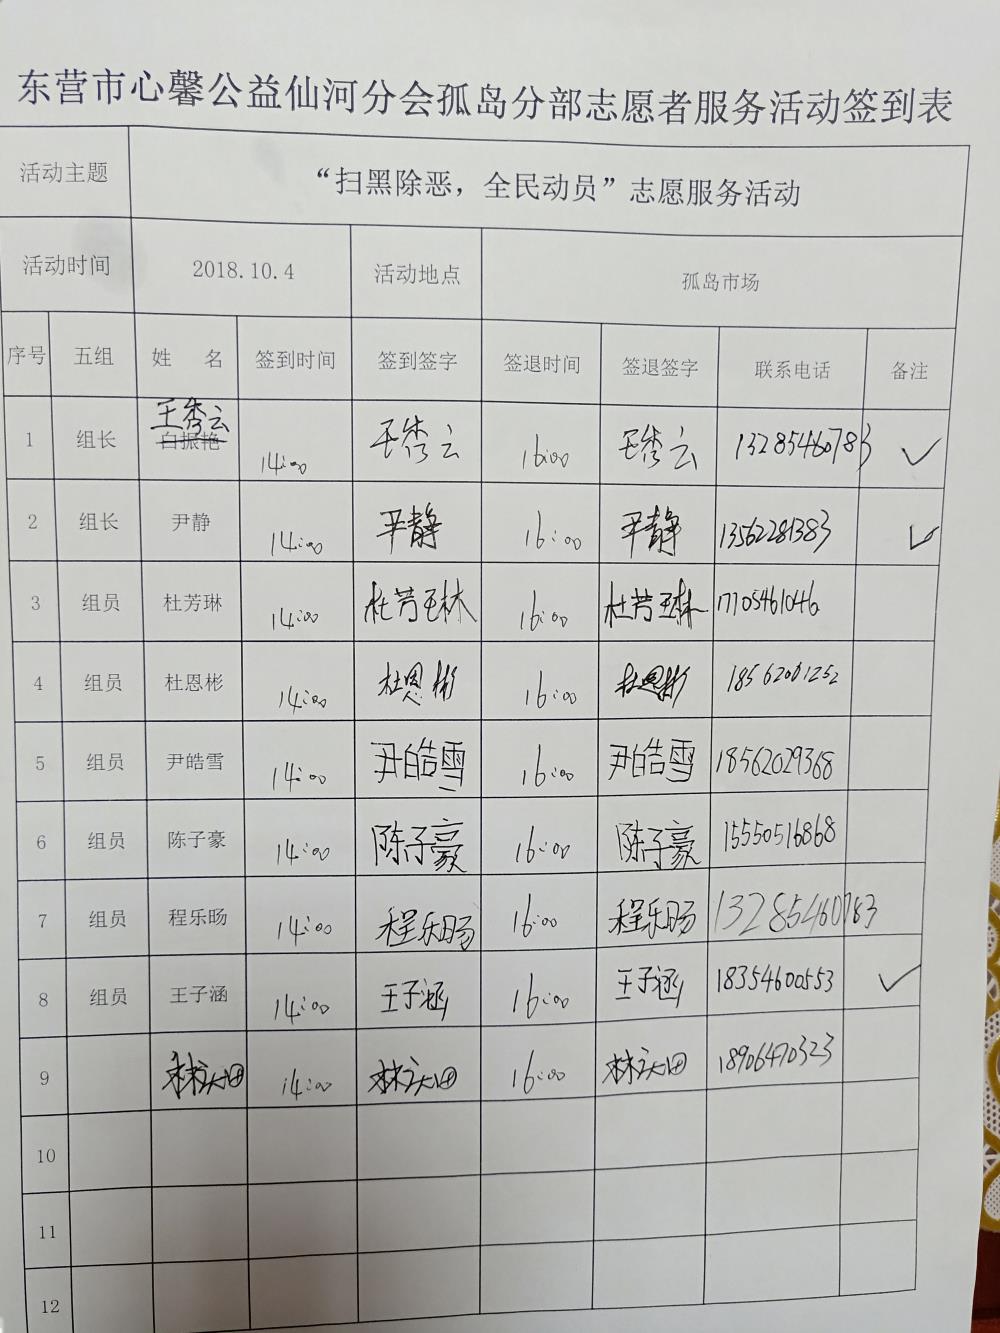 东营市心馨公益仙河分会孤岛分部志愿者服务活动签到表
活动主题 “扫黑除恶，全民动员”志愿服务活动
活动时间 2018.10.4 活动地点 孤岛市场
序号 五组 姓 名 签到时间 签到签字 签退时间 签退签字 联系电话 备注
王秀云
1 组长 白振艳 14:00 王秀云 16:00 王秀云 13285460783 ✓
2 组长 尹静 14:00 尹静 16:00 尹静 13562281383 ✓
3 组员 杜芳琳 14:00 杜芳琳 16:00 杜芳琳 17705461046
4 组员 杜恩彬 14:00 杜恩彬 16:00 杜恩彬 18562001252
5 组员 尹皓雪 14:00 尹皓雪 16:00 尹皓雪 18562029368
6 组员 陈子豪 14:00 陈子豪 16:00 陈子豪 15550516868
7 组员 程乐旸 14:00 程乐旸 16:00 程乐旸 13285460783
8 组员 王子涵 14:00 王子涵 16:00 王子涵 18354600553 ✓
9 14:00 16:00 18906470323
10
11
12